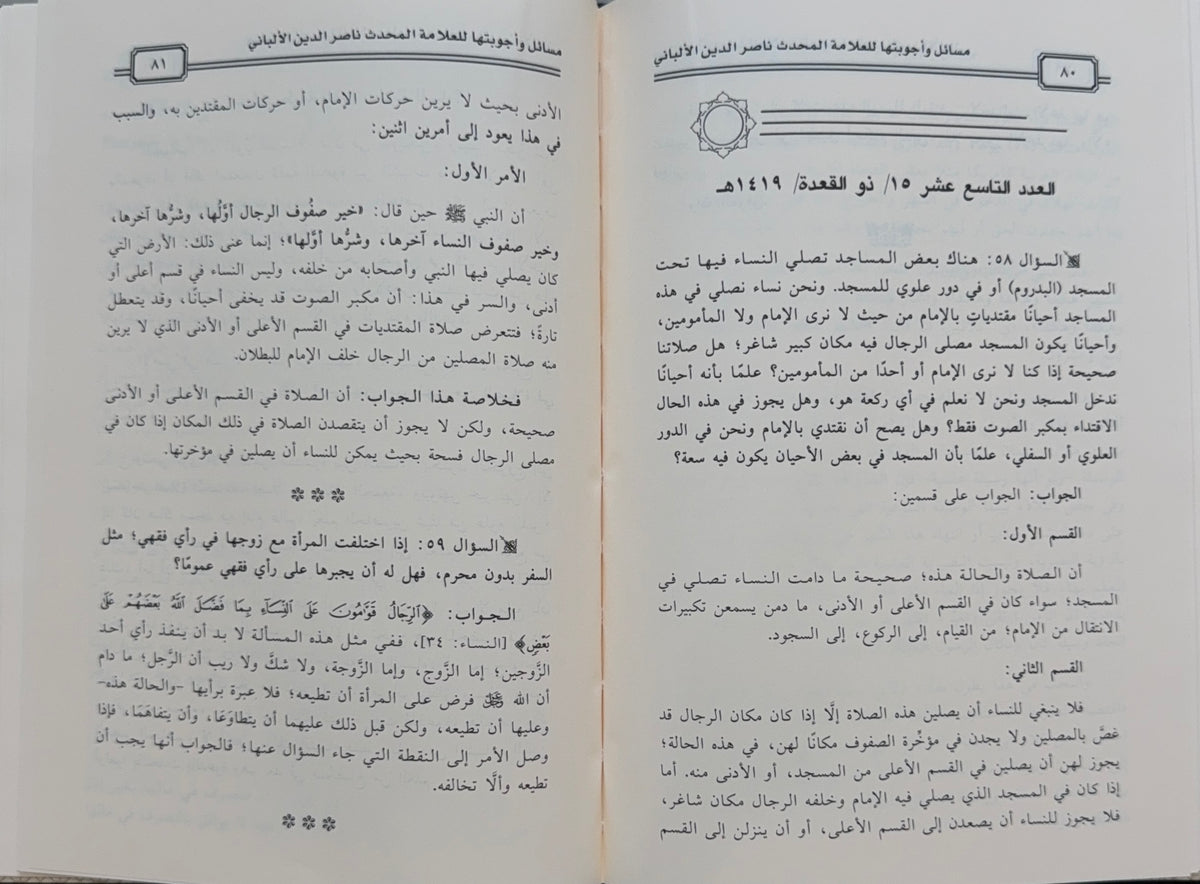 مسائل وأجوبتها للعلامة المحدث ناصر الدين الألباني
٨٠
العدد التاسع عشر ١٥/ ذو القعدة/ ١٤١٩هـ
السؤال ٥٨: هناك بعض المساجد تصلي النساء فيها تحت
المسجد (البدروم) أو في دور علوي للمسجد. ونحن نساء نصلي في هذه
المساجد أحيانًا مقتدياتٍ بالإمام من حيث لا نرى الإمام ولا المأمومين،
وأحيانًا يكون المسجد مصلى الرجال فيه مكان كبير شاغر؛ هل صلاتنا
صحيحة إذا كنا لا نرى الإمام أو أحدًا من المأمومين؟ علمًا بأنه أحيانًا
ندخل المسجد ونحن لا نعلم في أي ركعة هو، وهل يجوز في هذه الحال
الاقتداء بمكبر الصوت فقط؟ وهل يصح أن نقتدي بالإمام ونحن في الدور
العلوي أو السفلي، علمًا بأن المسجد في بعض الأحيان يكون فيه سعة؟
الجواب: الجواب على قسمين:
القسم الأول:
أن الصلاة والحالة هذه؛ صحيحة ما دامت النساء تصلي في
المسجد؛ سواء كان في القسم الأعلى أو الأدنى، ما دمن يسمعن تكبيرات
الانتقال من الإمام؛ من القيام، إلى الركوع، إلى السجود.
القسم الثاني:
فلا ينبغي للنساء أن يصلين هذه الصلاة إلَّا إذا كان مكان الرجال قد
غصَّ بالمصلين ولا يجدن في مؤخِّرة الصفوف مكانًا لهن، في هذه الحالة؛
يجوز لهن أن يصلين في القسم الأعلى من المسجد، أو الأدنى منه. أما
إذا كان في المسجد الذي يصلي فيه الإمام وخلفه الرجال مكان شاغر،
فلا يجوز للنساء أن يصعدن إلى القسم الأعلى، أو أن ينزلن إلى القسم
مسائل وأجوبتها للعلامة المحدث ناصر الدين الألباني
٨١
الأدنى بحيث لا يرين حركات الإمام، أو حركات المقتدين به، والسبب
في هذا يعود إلى أمرين اثنين:
الأمر الأول:
أن النبي ﷺ حين قال: «خير صفُوف الرجال أوَّلُها، وشرُّها آخرها،
وخير صفوف النساء آخرها، وشرُّها أوَّلها»؛ إنما عنى ذلك: الأرض التي
كان يصلي فيها النبي وأصحابه من خلفه، وليس النساء في قسم أعلى أو
أدنى، والسر في هذا: أن مكبر الصوت قد يخفى أحيانًا، وقد يتعطل
تارةً؛ فتتعرض صلاة المقتديات في القسم الأعلى أو الأدنى الذي لا يرين
منه صلاة المصلين من الرجال خلف الإمام للبطلان.
فخلاصة هذا الجواب: أن الصلاة في القسم الأعلى أو الأدنى
صحيحة، ولكن لا يجوز أن يتقصدن الصلاة في ذلك المكان إذا كان في
مصلى الرجال فسحة بحيث يمكن للنساء أن يصلين في مؤخرتها.
***
السؤال ٥٩: إذا اختلفت المرأة مع زوجها في رأي فقهي؛ مثل
السفر بدون محرم، فهل له أن يجبرها على رأي فقهي عمومًا؟
الجواب: ﴿ٱلرِّجَالُ قَوَّٰمُونَ عَلَى ٱلنِّسَآءِ بِمَا فَضَّلَ ٱللَّهُ بَعْضَهُمْ عَلَىٰ
بَعْضٍ﴾ [النساء: ٣٤]، ففي مثل هذه المسألة لا بد أن ينفذ رأي أحد
الزَّوجين؛ إما الزَّوج، وإما الزَّوجة، ولا شكَّ ولا ريب أن الرَّجل؛ ما دام
أن الله ﷻ فرض على المرأة أن تطيعه؛ فلا عبرة برأيها -والحالة هذه-
وعليها أن تطيعه، ولكن قبل ذلك عليهما أن يتطاوَعَا، وأن يتفاهَمَا، فإذا
وصل الأمر إلى النقطة التي جاء السؤال عنها؛ فالجواب أنها يجب أن
تطيعه وألَّا تخالفه.
***